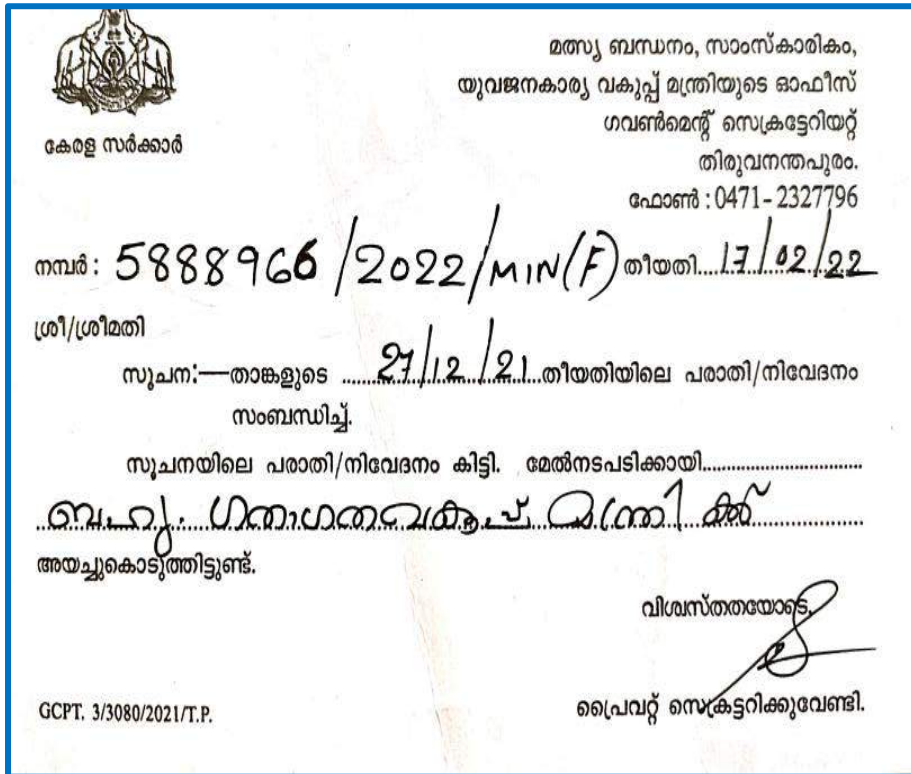 മത്സ്യ ബന്ധനം, സാംസ്കാരികം,
യുവജനകാര്യ വകുപ്പ് മന്ത്രിയുടെ ഓഫീസ്
ഗവൺമെന്റ് സെക്രട്ടേറിയറ്റ്
തിരുവനന്തപുരം.
ഫോൺ : 0471- 2327796
കേരള സർക്കാർ
നമ്പർ : 5888966 /2022/MIN(F) തീയതി....17/02/22
ശ്രീ/ശ്രീമതി
സൂചന:—താങ്കളുടെ ......27/12/21...തീയതിയിലെ പരാതി/നിവേദനം
സംബന്ധിച്ച്.
സൂചനയിലെ പരാതി/നിവേദനം കിട്ടി. മേൽനടപടിക്കായി..............................
ബഹു. ഗതാഗതവകുപ്പ് മന്ത്രി ക്ക്
അയച്ചുകൊടുത്തിട്ടുണ്ട്.
വിശ്വസ്തതയോടെ,
പ്രൈവറ്റ് സെക്രട്ടറിക്കുവേണ്ടി.
GCPT. 3/3080/2021/T.P.